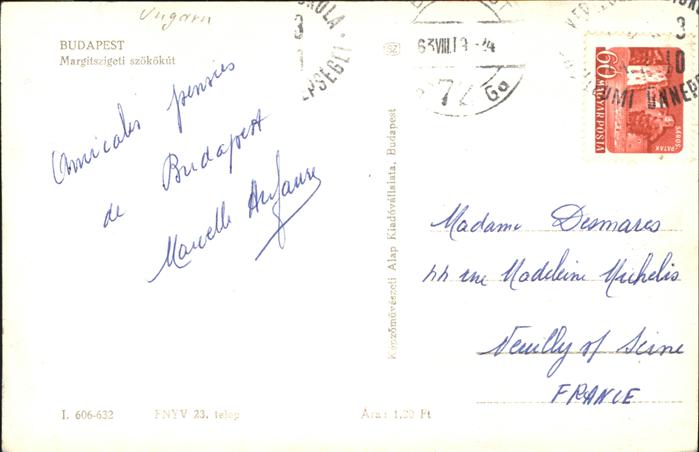 Ungarn
BUDAPEST
Margitszigeti szökőkút
Amicales pensées
de Budapest
Marcelle
I. 606-632
FNYV 23. telep
Ára: 1,20 Ft
Képzőművészeti Alap Kiadóvállalata, Budapest
63 VIII.19-14
72
Ga
3
10
60
MAGYAR POSTA
SÁROS-
PATAK
Madame Desmares
44 rue Madeleine Michelis
Neuilly s/ Seine
FRANCE